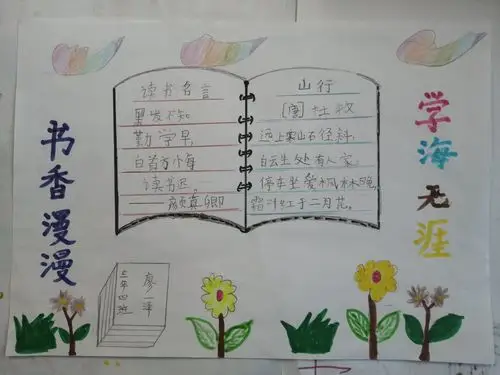 书香漫漫
读书名言
黑发不知
勤学早,
白首方悔
读书迟。
——颜真卿
山行
[唐]杜牧
远上寒山石径斜,
白云生处有人家,
停车坐爱枫林晚,
霜叶红于二月花。
学海无涯
三年四班
廖一泽